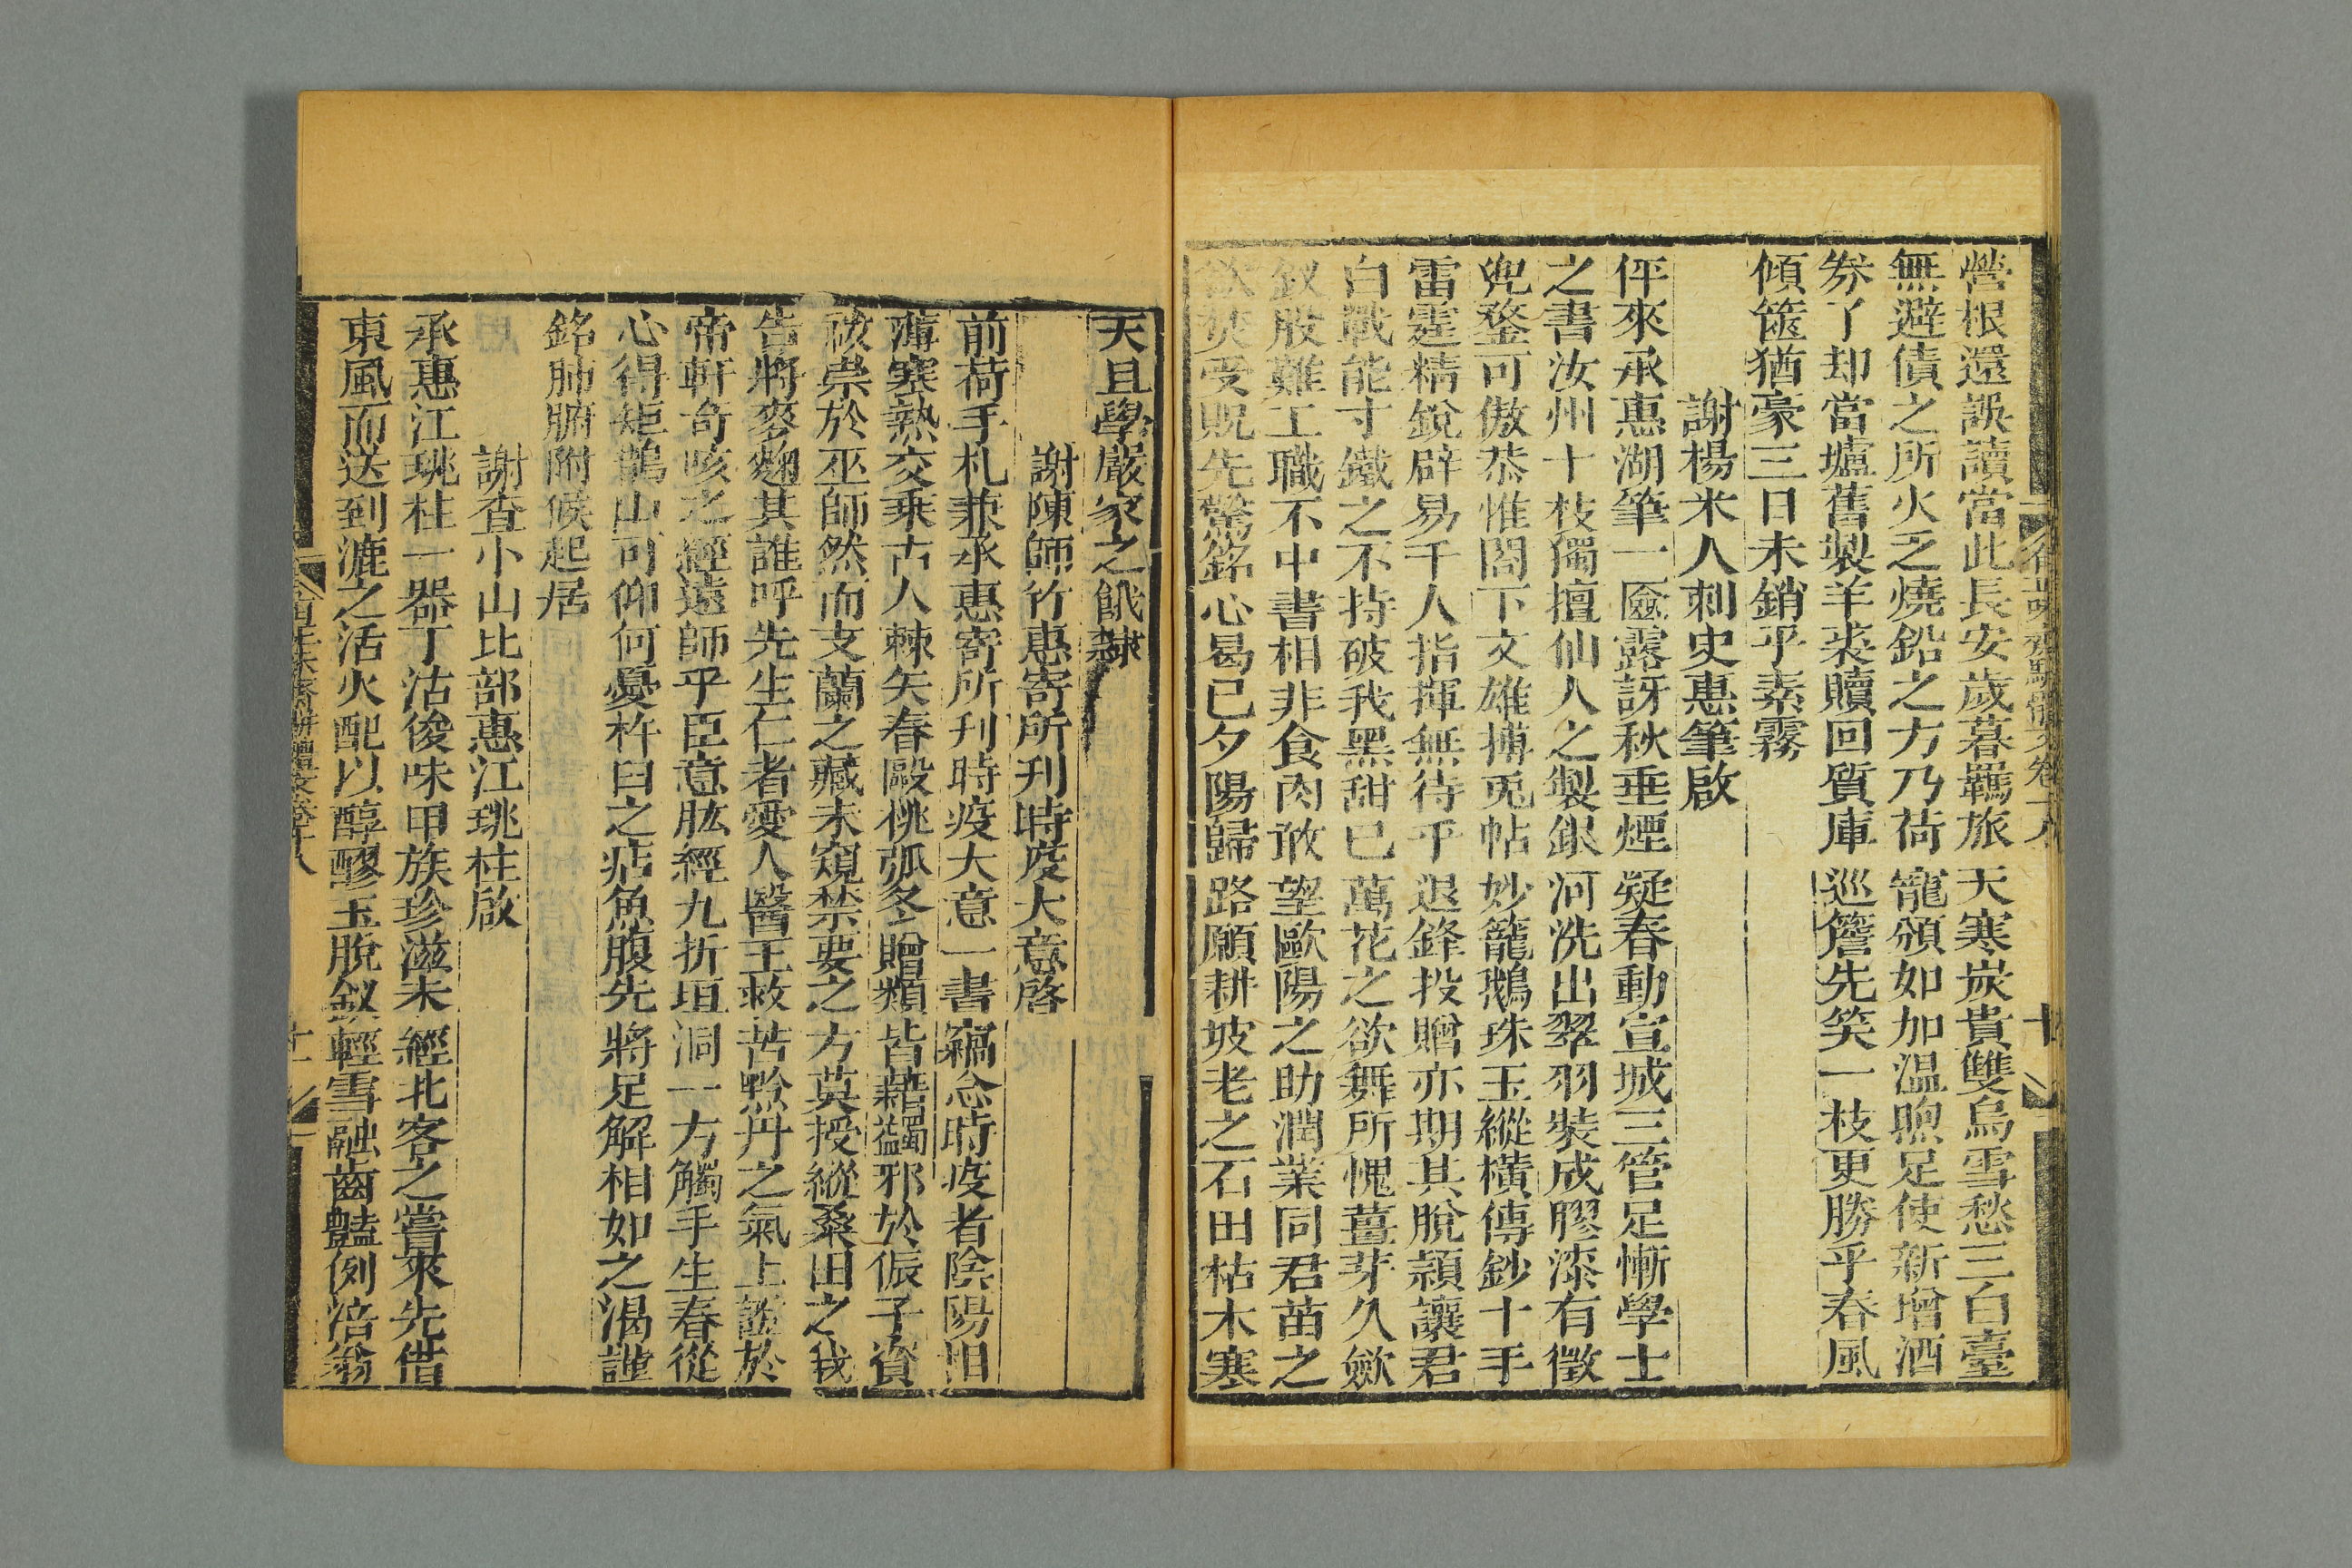 營根還誤讀當此長安歲暮羈旅天寒炭貴雙烏雪愁三白臺
無避債之所火乏燒鉛之方乃荷寵頒如加溫煦足使新增酒
券了却當壚舊製羊裘贖回質庫巡簷先笑一枝更勝乎春風
傾篋猶豪三日未銷乎素霧
謝楊米人刺史惠筆啟
伻來承惠湖筆一匳露訝秋垂煙疑春動宣城三管足慚學士
之書汝州十枝獨擅仙人之製銀河洗出翠羽裝成膠漆有徵
兜鍪可傲恭惟閣下文雄搏兎帖妙籠鵝珠玉縱橫傳鈔十手
雷霆精銳辟易千人指揮無待乎退鋒投贈亦期其脫穎讓君
白戰能寸鐵之不持破我黑甜已萬花之欲舞所愧薑芽久歛
釵股難工職不中書相非食肉敢望歐陽之助潤業同君苗之
欲焚受貺先驚銘心曷已夕陽歸路願耕坡老之石田枯木寒
天且學嚴家之餓隸
謝陳師竹惠寄所刋時疫大意啓
前荷手札兼承惠寄所刋時疫大意一書竊念時疫者陰陽相
薄寒熱交乘古人棘矢春毆桃弧冬贈類皆藉蠲邪於侲子資
祓祟於巫師然而支蘭之藏未窺禁要之方莫授縱桑田之我
告將麥麴其誰呼先生仁者愛人醫王救苦黙丹之氣上謹於
帝軒奇咳之經遠師乎臣意肱經九折垣洞一方觸手生春從
心得矩鵲山可仰何憂杵臼之痁魚腹先將足解相如之渴謹
銘肺腑附候起居
謝查小山比部惠江珧柱啟
承惠江珧柱一器丁沽俊味甲族珍滋未經北客之嘗來先借
東風而送到漉之活火配以醇醪玉脫釵輕雪融齒豔例涪翁
十
十一